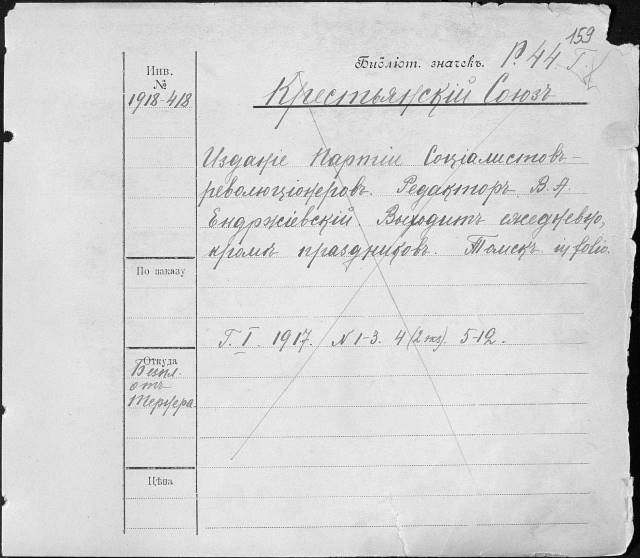 159
Библіот. значекъ. Р.44.
Инв.
№
1918-418
Крестьянскій Союзъ
Изданіе Партіи Соціалистовъ-
революціонеровъ. Редакторъ В. А
Ендржіевскій. Выходитъ ежедневно,
кромѣ праздниковъ. Томскъ in folio.
По заказу
Г. I. 1917. N 1-3. 4 (2 экз). 5-12.
Откуда
отъ
Цѣна